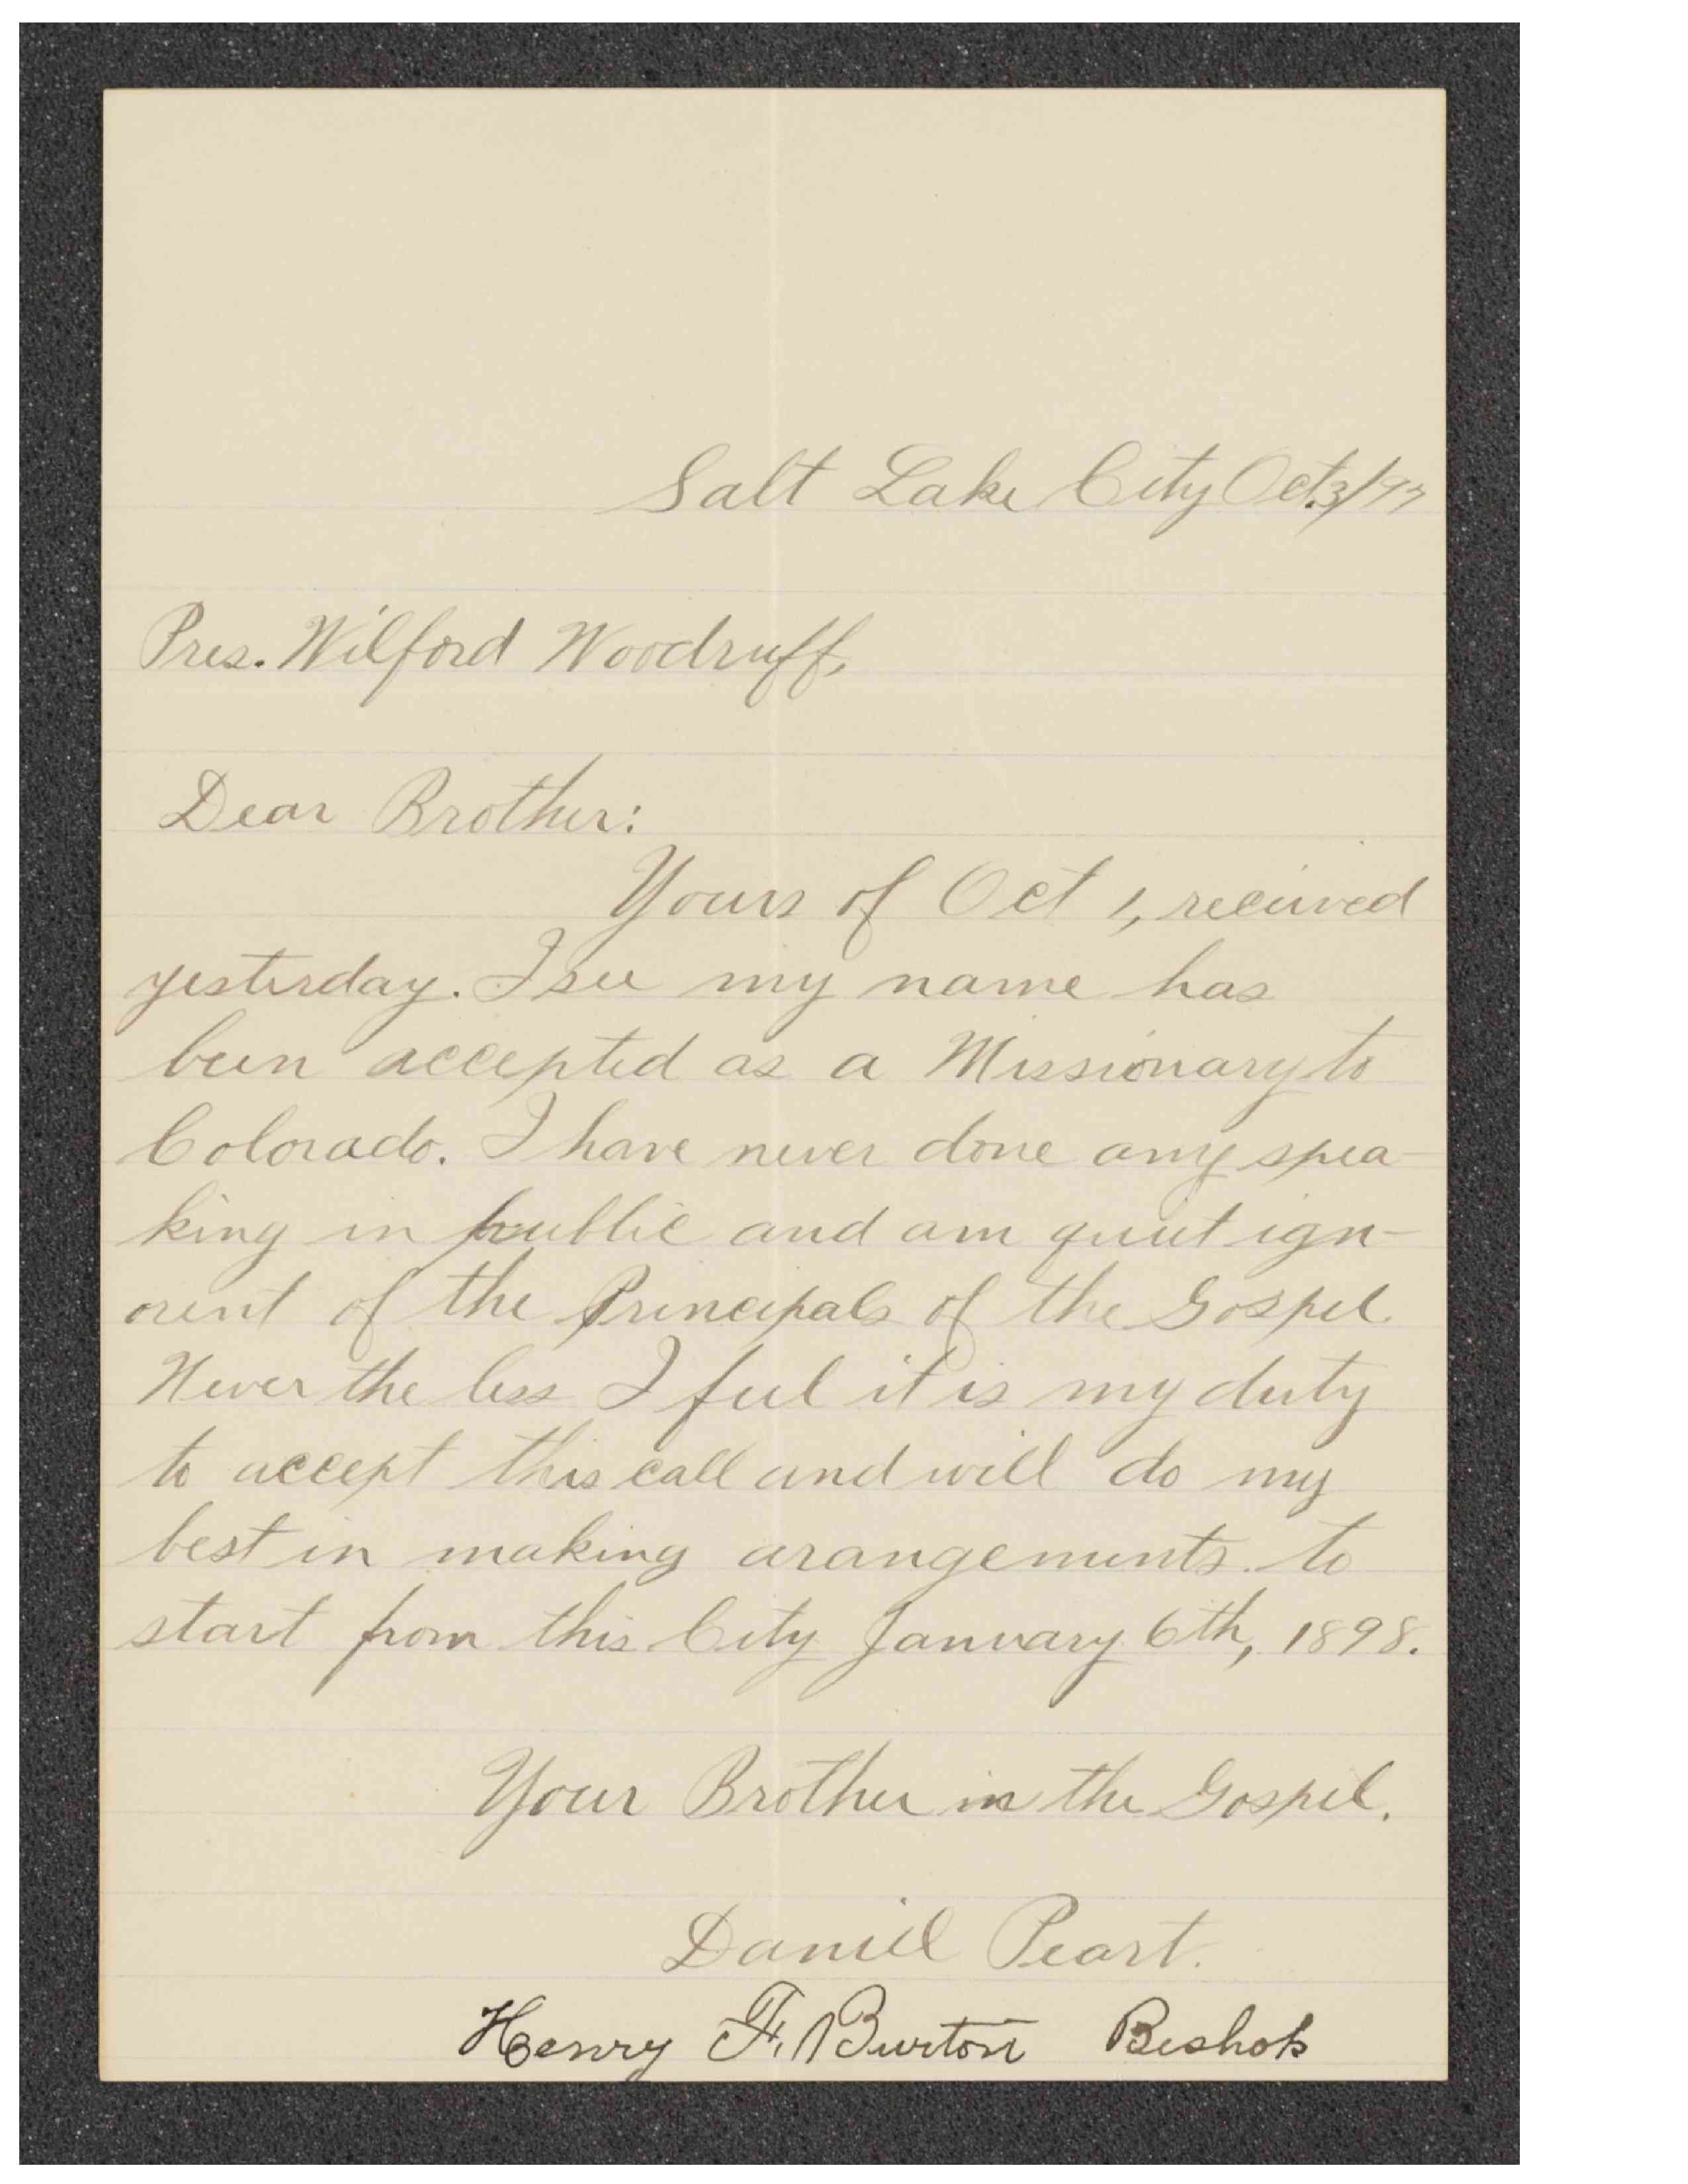 Salt Lake City Oct. 3/97
Pres. Wilford Woodruff,
Dear Brother:
Yours of Oct 1, received
yesterday. I see my name has
been accepted as a Missionary to
Colorado. I have never done any spea-
king in public and am quiet ign-
orent of the Principals of the Gospel.
Never the less I feel it is my duty
to accept this call and will do my
best in making arangements to
start from this City January 6th, 1898.
Your Brother in the Gospel.
Daniel Peart.
Henry F. Burton Bishop